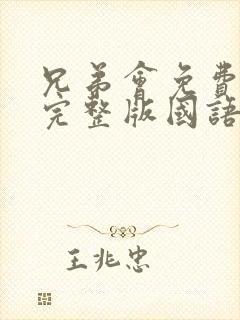 兄弟會免費
完整版國語
王兆忠